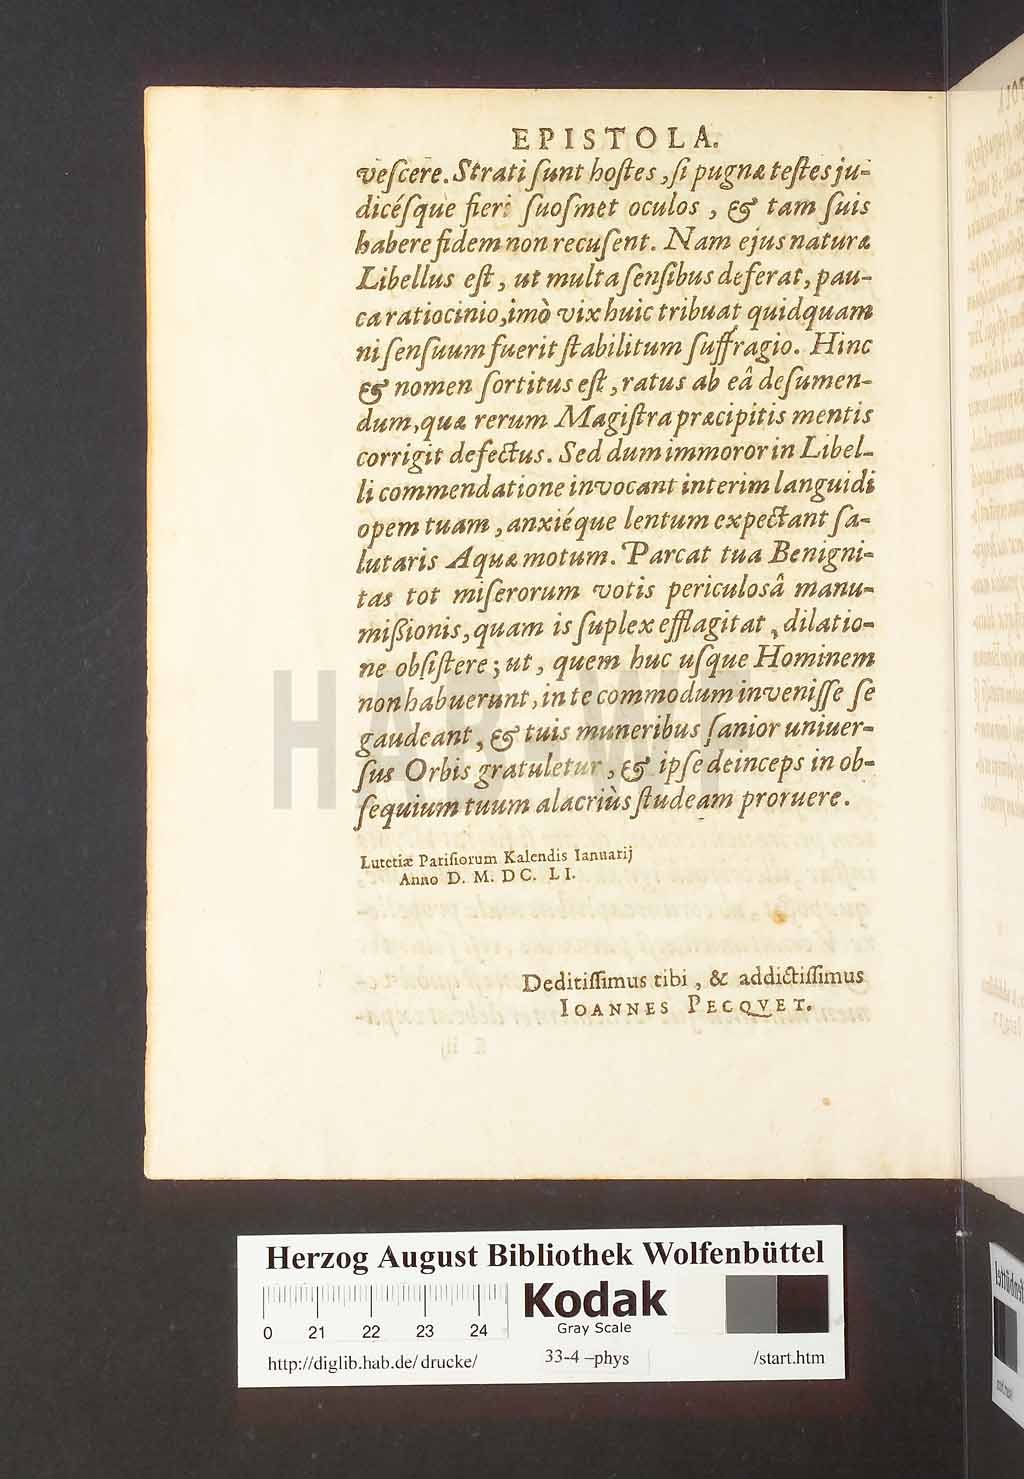 EPISTOLA.
veſcere. Strati ſunt hoſtes, ſi pugnæ teſtes ju-
dicéſque fieri ſuoſmet oculos, & tam ſuis
habere fidem non recuſent. Nam ejus naturæ
Libellus eſt, ut multa ſenſibus deferat, pau-
ca ratiocinio, imò vix huic tribuat quidquam
ni ſenſuum fuerit ſtabilitum ſuffragio. Hinc
& nomen ſortitus eſt, ratus ab eâ deſumen-
dum, quæ rerum Magiſtra præcipitis mentis
corrigit defectus. Sed dum immoror in Libel-
li commendatione invocant interim languidi
opem tuam, anxiéque lentum expectant ſa-
lutaris Aquæ motum. Parcat tua Benigni-
tas tot miſerorum votis periculosâ manu-
mißionis, quam is ſuplex efflagitat, dilatio-
ne obſiſtere; ut, quem huc uſque Hominem
non habuerunt, in te commodum inveniſſe ſe
gaudeant, & tuis muneribus ſanior uniuer-
ſus Orbis gratuletur, & ipſe deinceps in ob-
ſequium tuum alacriùs ſtudeam proruere.
Lutetiæ Pariſiorum Kalendis Ianuarij
Anno D. M. DC. LI.
Deditiſſimus tibi, & addictiſſimus
IOANNES PECQVET.
HAB WF
Herzog August Bibliothek Wolfenbüttel
0 21 22 23 24
Kodak
Gray Scale
http://diglib.hab.de/drucke/ 33-4–phys /start.htm